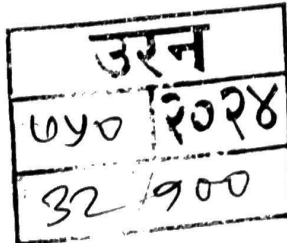 उरन
७५० २०२४
32/900